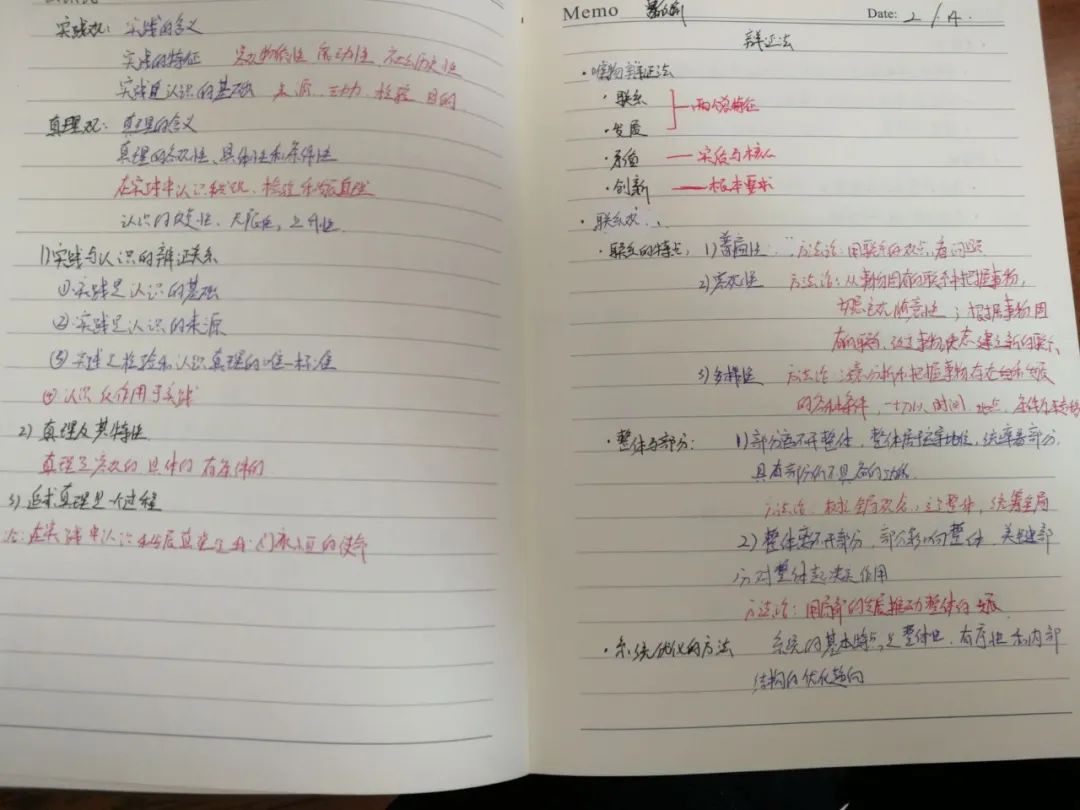 实践观：实践的含义
实践的特征 客观物质性 能动性 社会历史性
实践是认识的基础 来源 动力 检验 目的
真理观：真理的含义
真理的客观性、具体性和条件性
在实践中认识和发现、检验和发展真理
认识的反复性、无限性、上升性
1)实践与认识的辩证联系
①实践是认识的基础
②实践是认识的来源
③实践是检验认识真理的唯一标准
④认识反作用于实践
2) 真理及其特性
真理是客观的 具体的 有条件的
3)追求真理是一个过程
在实践中认识和发展真理是 的使命
Memo
Date: 2 / 4.
辩证法
·唯物辩证法
·联系
·发展 两个总特征
·矛盾 — 实质与核心
·创新 — 根本要求
·联系观
·联系的特点：1)普遍性： 方法论：用联系的观点看问题
2)客观性 方法论：从事物固有的联系中把握事物，
切忌主观随意性；根据事物固
有的联系，改变事物状态，建立新的联系、
3)多样性 方法论：注意分析和把握事物存在和发展
的各种条件，一切以、时间、地点、条件为转移
·整体与部分：1)部分离不开整体，整体居于主导地位，统率着部分，
具有部分所不具备的功能
方法论：树立全局观念，立足整体，统筹全局
2)整体离不开部分，部分影响整体，关键部
分对整体起决定作用
方法论：用局部的发展推动整体的发展
·系统优化的方法 系统的基本特点是整体性、有序性和内部
结构的优化趋向